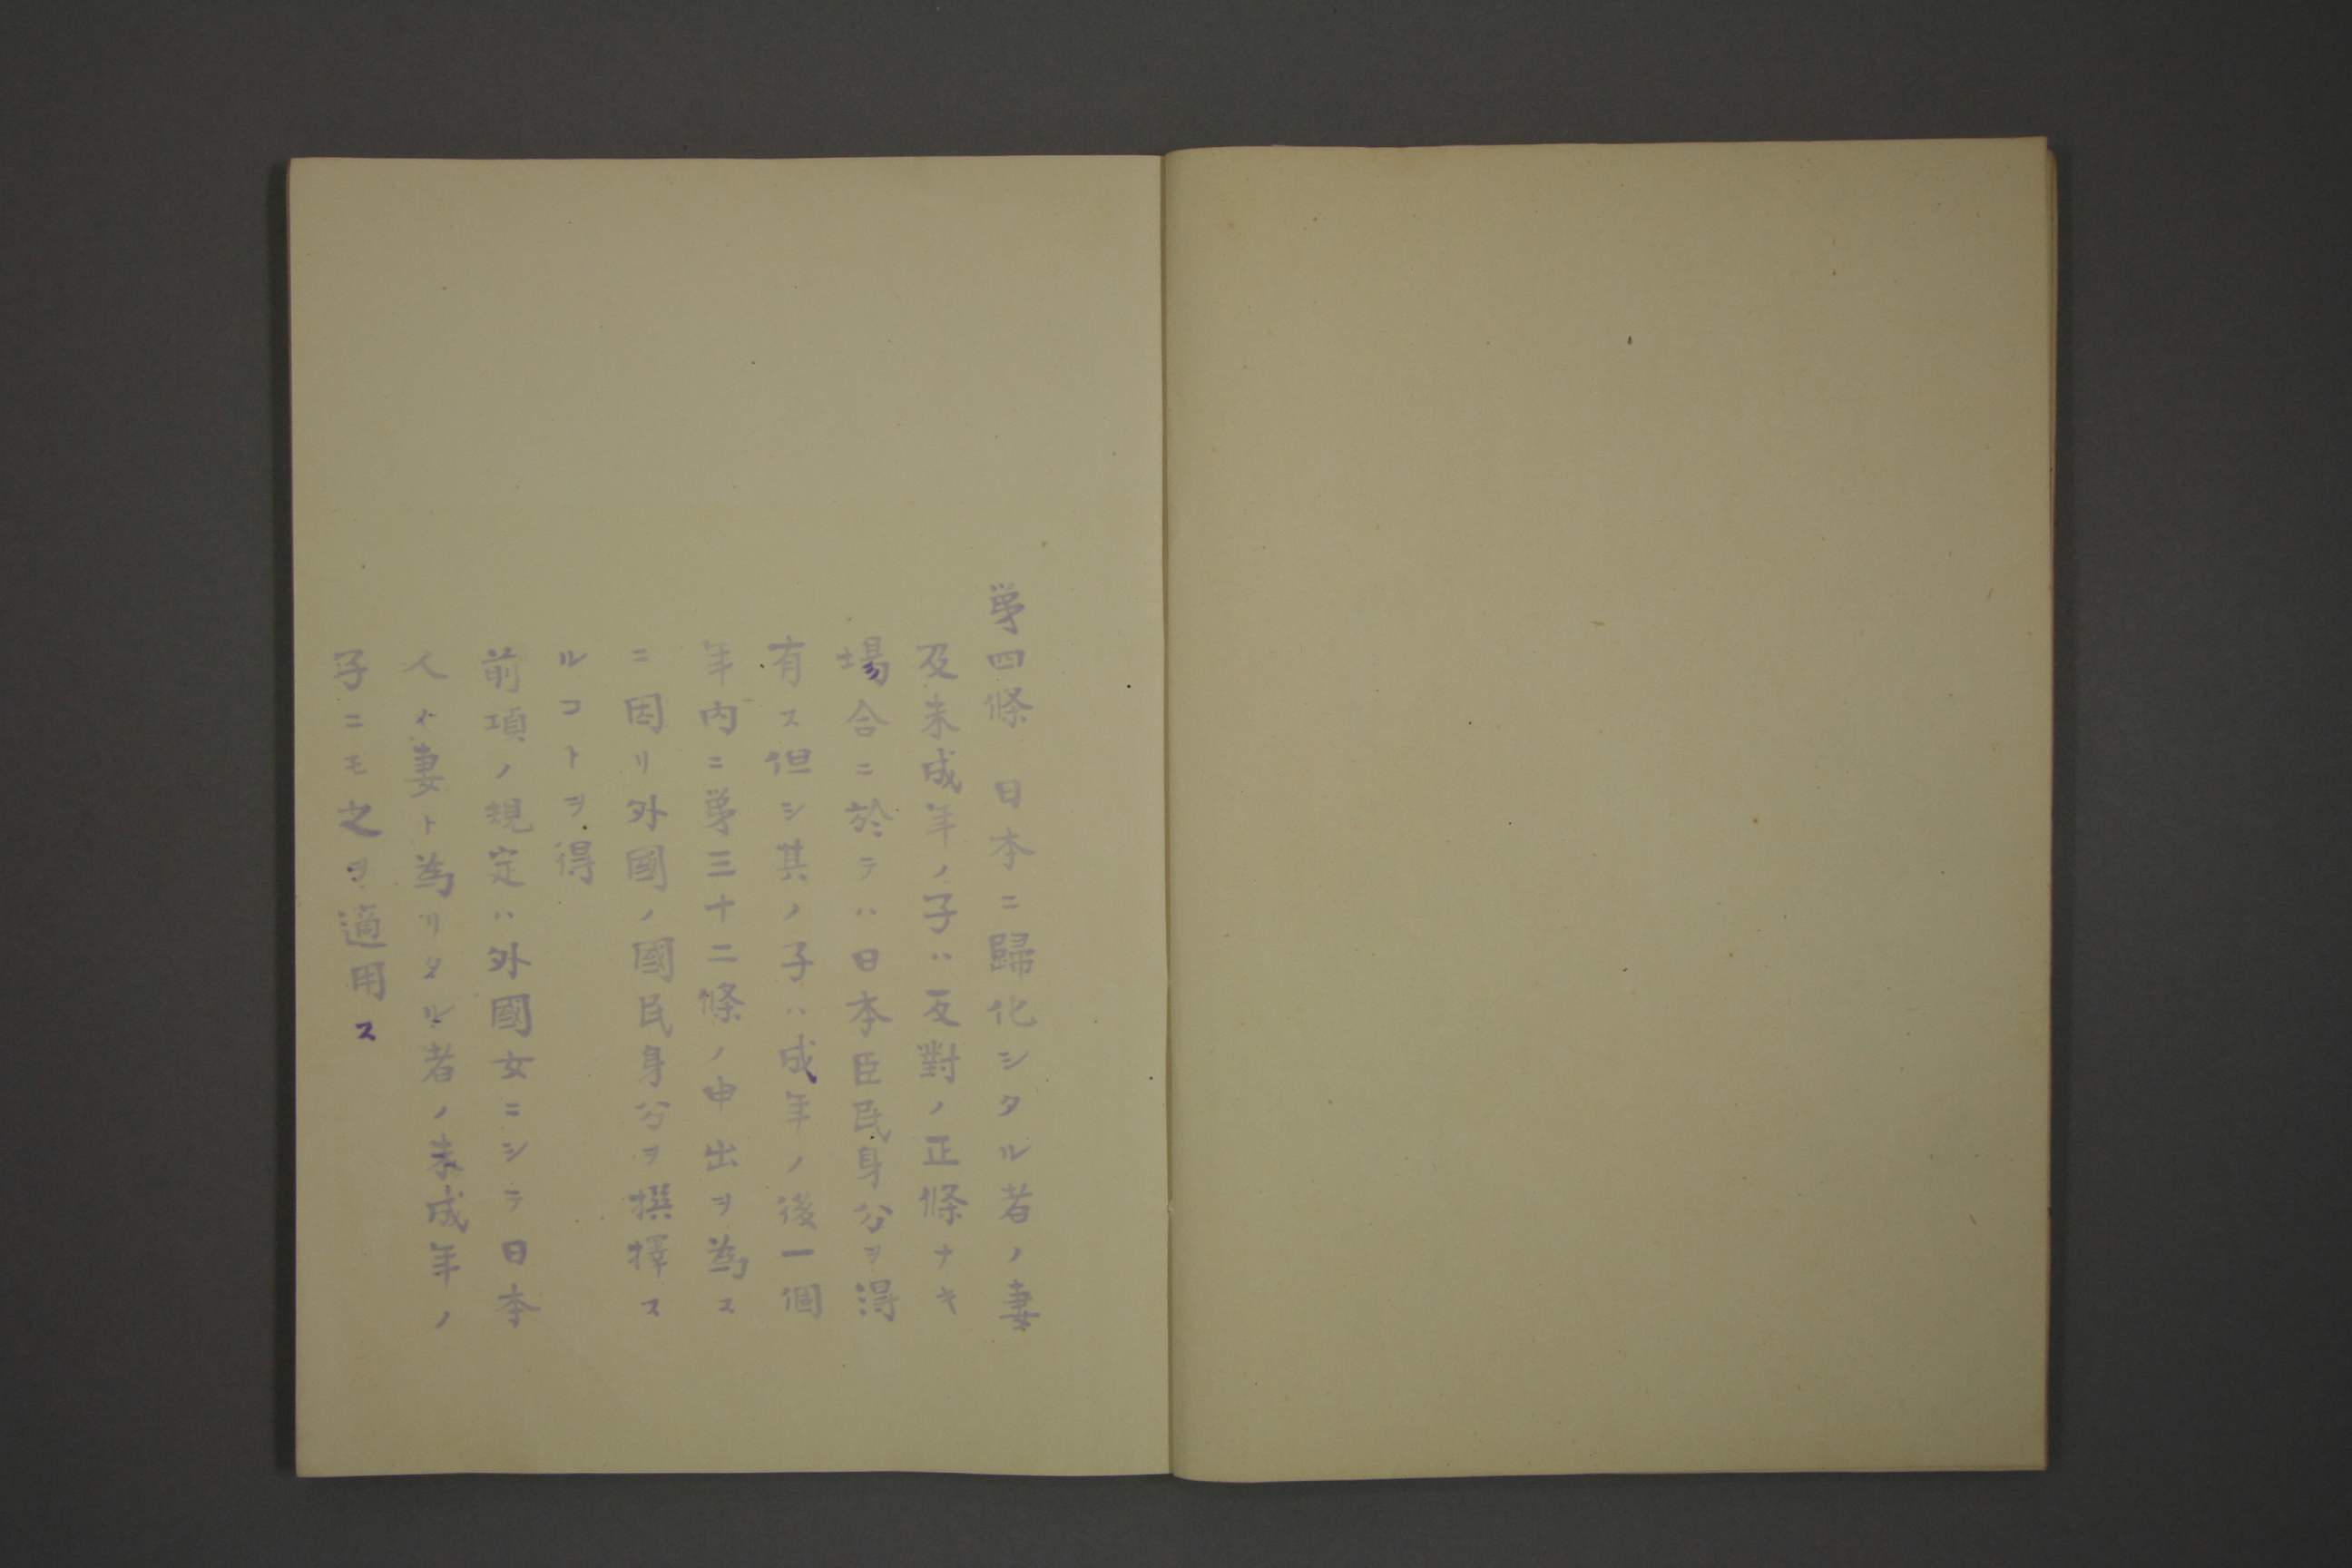 第四條 日本ニ歸化シタル者ノ妻
及未成年ノ子ハ反對ノ正條ナキ
場合ニ於テハ日本臣民身分ヲ得
有ス但シ其ノ子ハ成年ノ後一個
年內ニ第三十二條ノ申出ヲ為ス
ニ因リ外國ノ國民身分ヲ撰擇ス
ルコトヲ得
前項ノ規定ハ外國女ニシテ日本
人ノ妻ト為リタル者ノ未成年ノ
子ニモ之ヲ適用ス